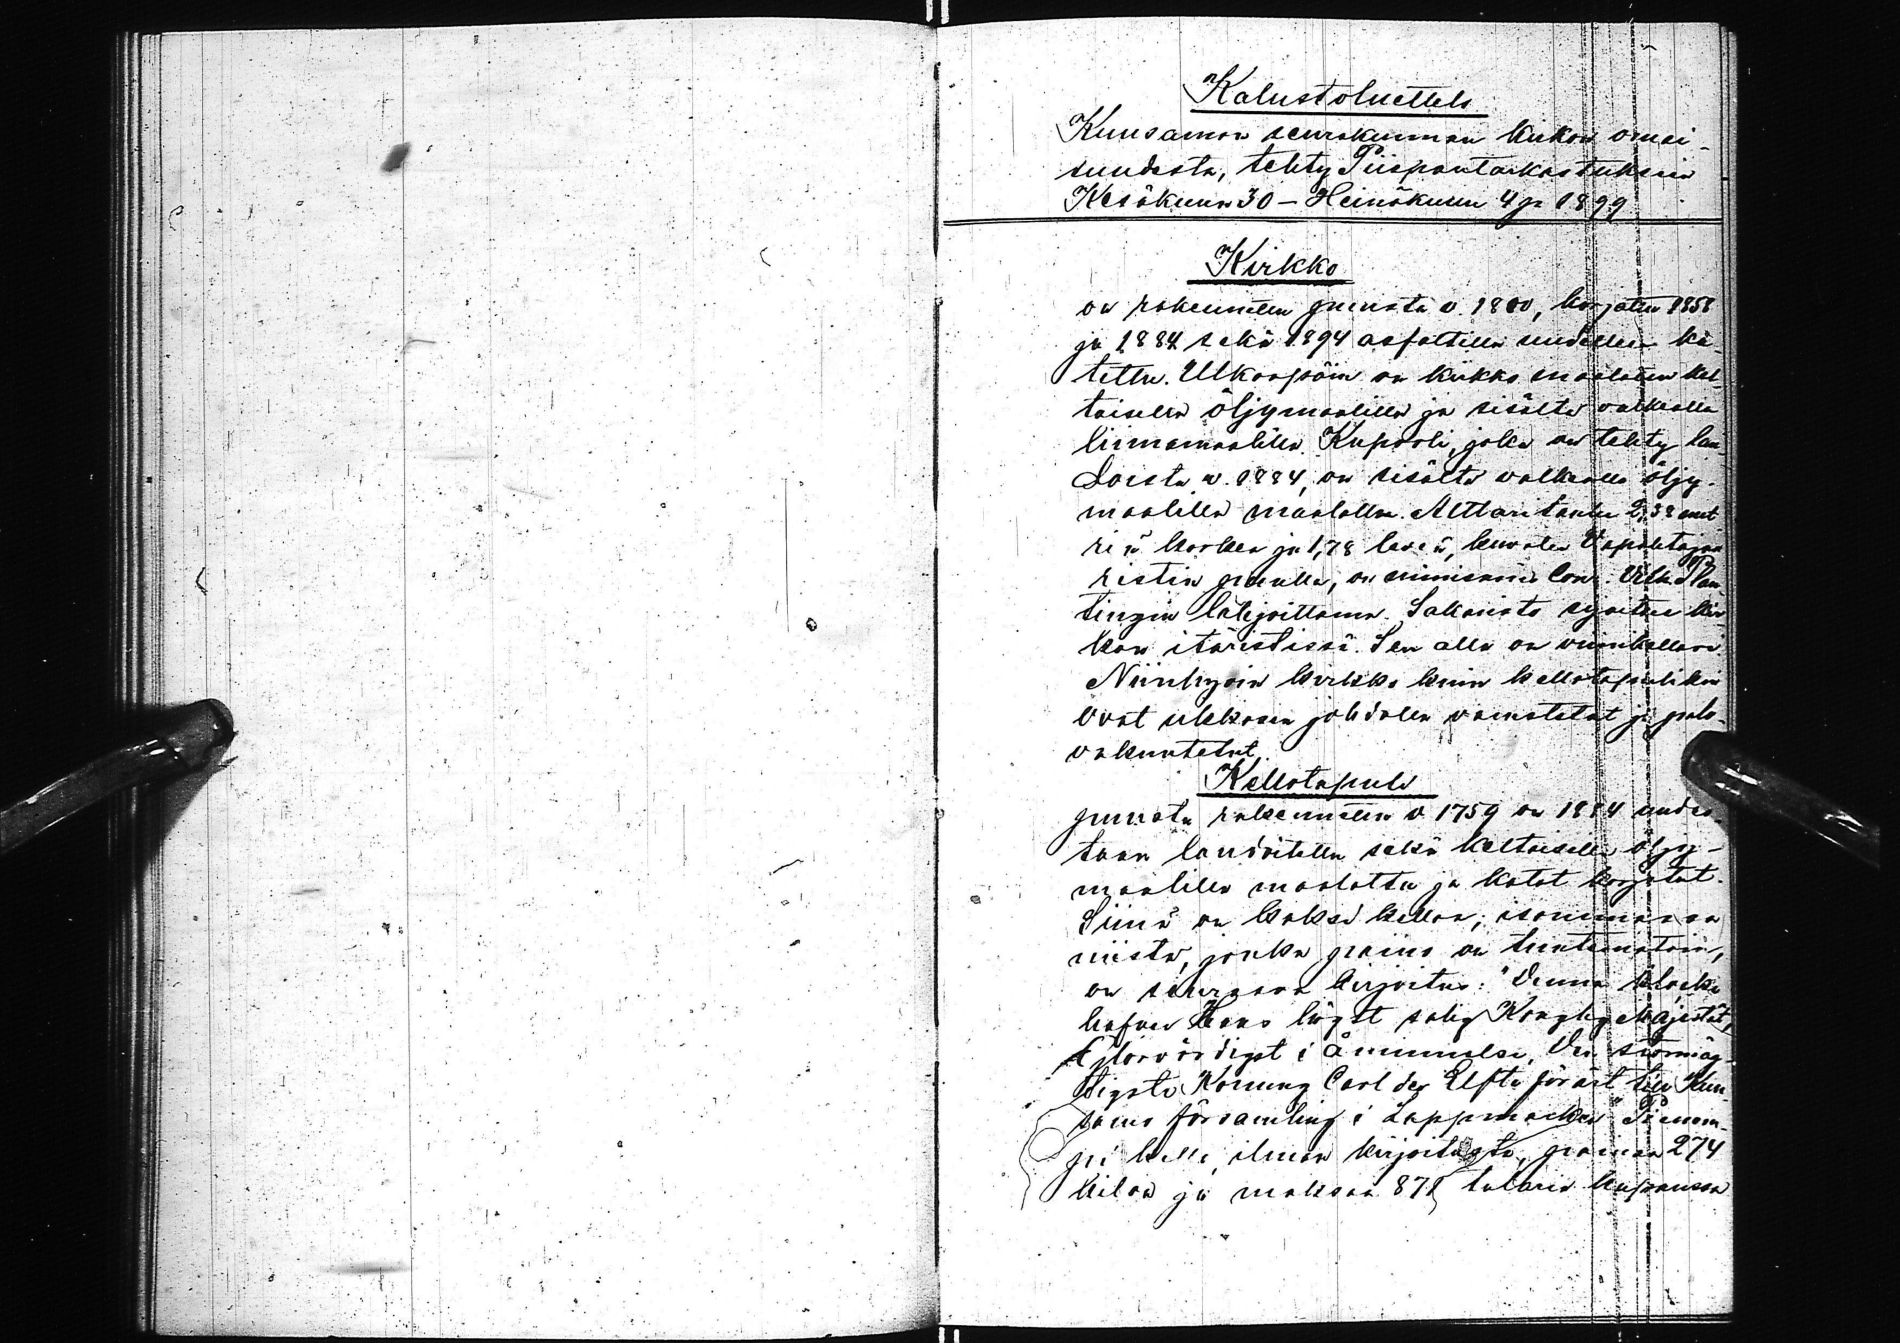 Kalustoluettelo
Kuusamon seurakunnan kirkon omai-
suudesta, tehty Piispantarkastuksiin
Kesäkuun 30 – Heinäkuun 4 p 1899
Kirkko
on rakennettu puusta v. 1800, korjattu 1858
ja 1884 sekä 1894 asfaltilla uudelleen ka-
tettu. Ulkoapäin on kirkko maalattu kel-
taisella öljymaalilla ja sisältä valkealla
liimamaalilla. Kupooli, joka on tehty lau-
doista v. 1884, on sisältä valkealla öljy-
maalilla maalattu. Alttaritaulu 2,38 met
riä korkea ja 1,78 leveä, kuvalla Vapahtajan
ristin puulla, on Vilh. Plan
tingin lahjoittama. Sakaristo sijaitsee kir
kon itäristissä. Sen alla on viinikellari.
Niinhyvin kirkko kuin kellotapulikin
ovat ukkosen johdolla varustetut ja palo-
vakuutetut.
Kellotapuli
puusta rakennettu v 1759 on 1884 uudes-
taan laudoitettu sekä keltaisella öljy-
maalilla maalattu ja katot korjatut.
Siinä on kaksi kelloa; isommassa
niistä, jonka paino on tuntematoin,
on seuraava kirjoitus: "Denna klocka
hafver Hans högst salig Konglig Majestät,
Glorvördigst i åminnelse, Den stormäg-
tigste Konung Carl der Elfte förärt till Kuu-
samo församling i Lappmarken" Pienem-
pi kello, ilman kirjoitusta, painaa 274
kiloa ja maksaa 871 talaria kuparissa